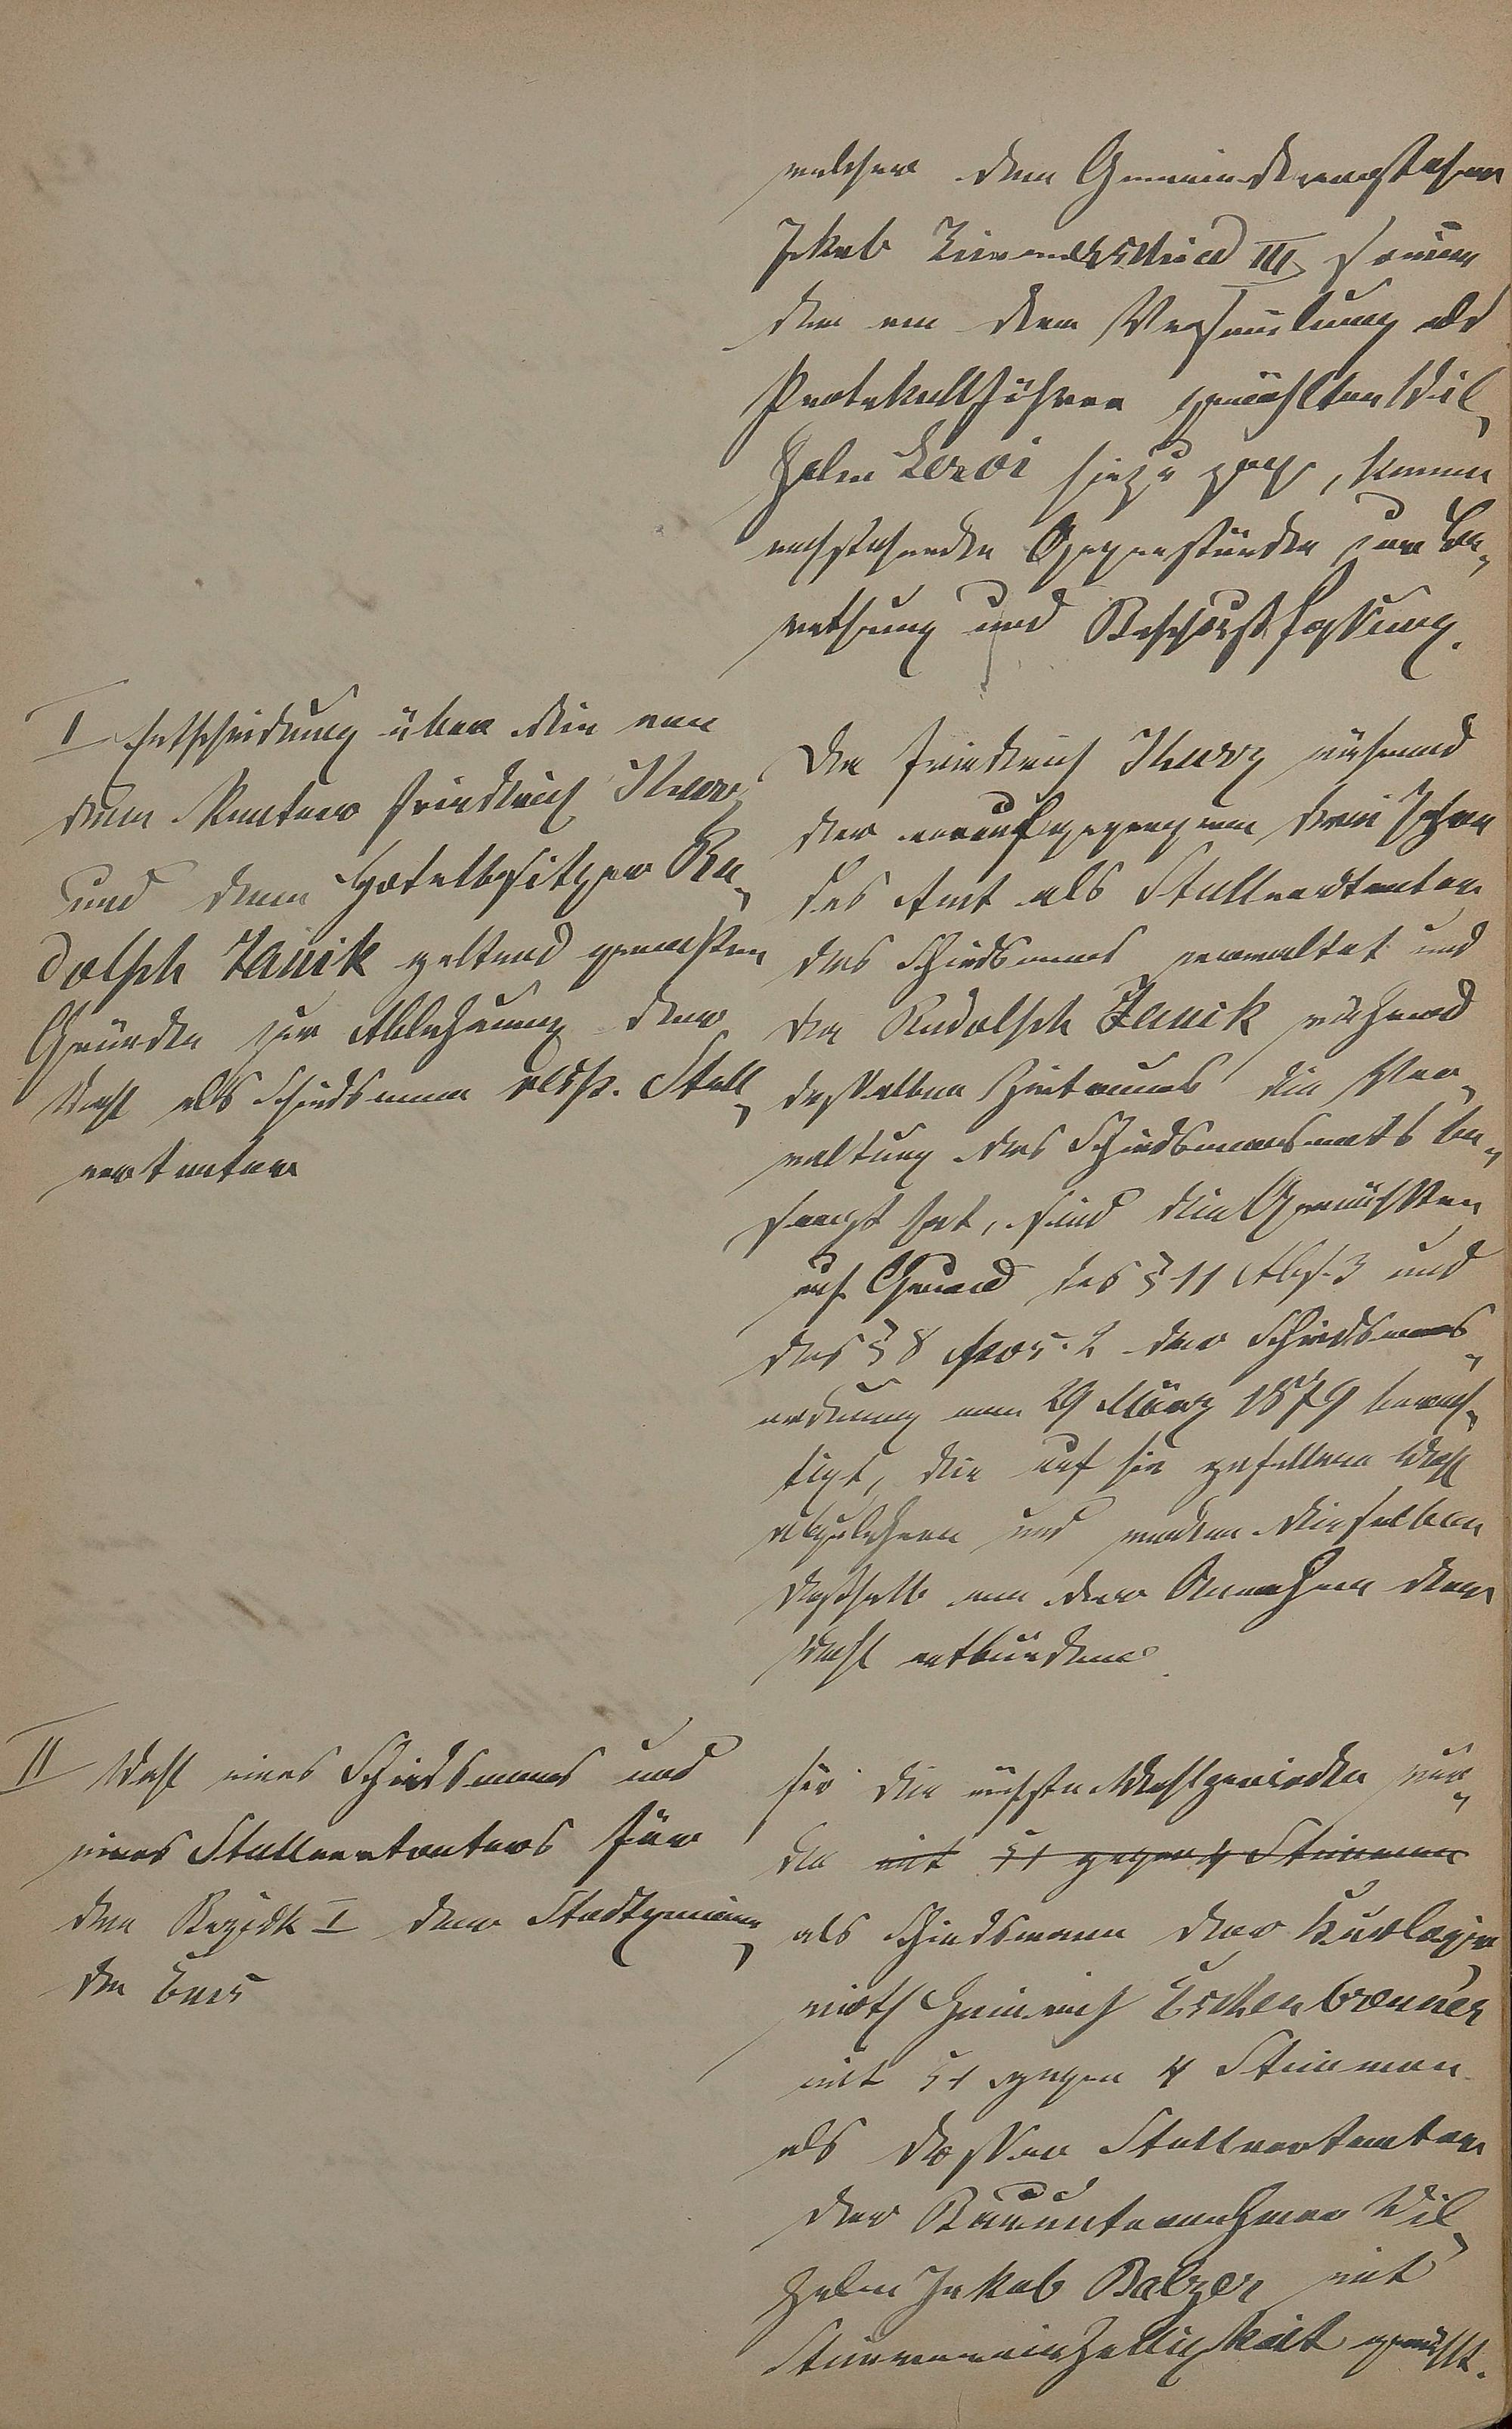 welcher dem Gemeindevorsteher
Jakob Linnenschmied III, sowie
den von der Versammlung als
Protokollführer gewählten Wil-
helm Levoi hinzu zog, kamen
nachstehende Gegenstände zur Be-
rathung und Beschlußfassung.
I Entscheidung über die von
dem Rentner Friedrich Kurz
und dem Hotelbesitzer Ru-
dolph Janik geltend gemachten
Gründe zur Ablehnung der
Wahl als Schiedsmann resp. Stell-
vertreter
Da Friedrich Kurz während
der voraufgegangenen drei Jahre
das Amt als Stellvertreter
des Schiedsmanns verwaltet und
da Rudolph Janik während
desselben Zeitraums die Ver-
waltung des Schiedsmannsamts be-
sorgt hat, sind die Gewählten
auf Grund des § 11 Abs. 3 und
des § 8 Pos. 2 der Schiedsmanns-
ordnung vom 29 März 1879 berech-
tigt, die auf sie gefallene Wahl
abzulehnen und werden dieselben
deßhalb von der Annahme der
Wahl entbunden.
II Wahl eines Schiedsmanns und
eines Stellvertreters für
den Bezirk I der Stadtgemein-
de Ems
für die nächste Wahlperiode wur-
de mit 51 gegen 4 Stimmen
als Schiedsmann der
wirth Heinrich Eschenbrenner
mit 51 gegen 4 Stimmen
als dessen Stellvertreter
der Bauunternehmer Wil-
helm Jakob Balzer mit
Stimmeneinhelligkeit gewählt.